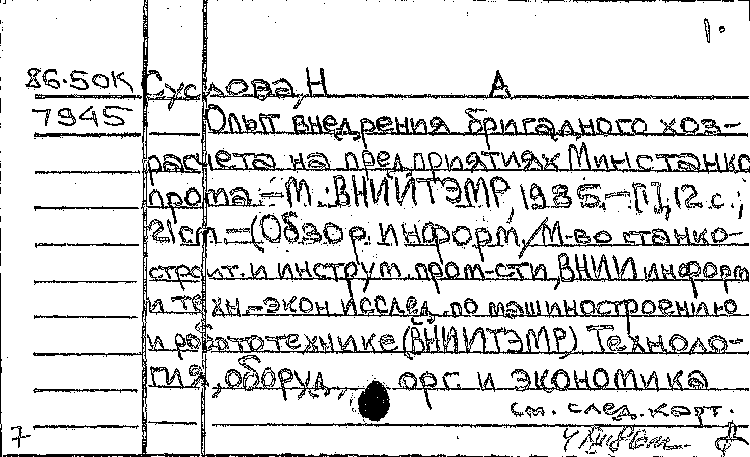 1.
86.50К Суслова, Н А
7945 Опыт внедрения бригадного хоз-
расчета на предприятиях Минстанко
прома.-М.:ВНИИТЭМР, 1985.-[1],12 с.;
21 cm.-(Обзор. информ./М-во станко-
строит. и инструм. пром-сти, ВНИИ информ
и техн.-экон исслед. по машиностроению
и робототехнике (ВНИИТЭМР) Техноло-
гия, оборуд., орг. и экономика
см. след. карт.
7